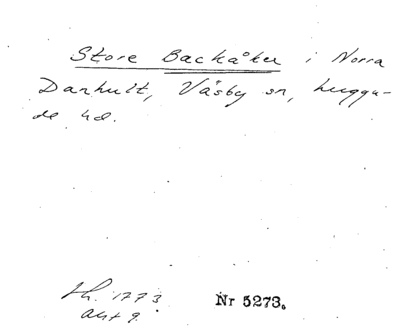 Store Backåker i Norra
Danhult, Väsby sn, Luggu-
de hd.
Lh. 1773
akt 9.
Nr 5273.